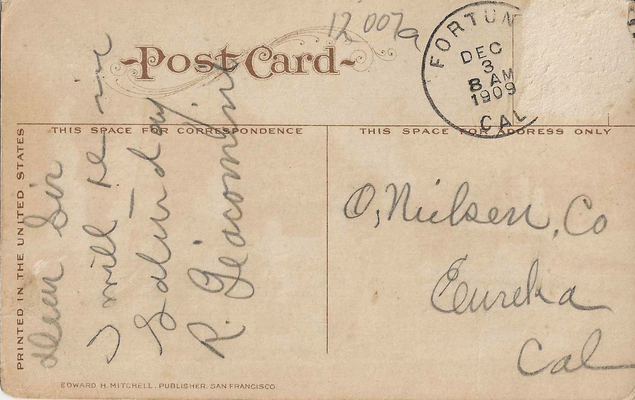 12 007a
Post Card
FORTUN
DEC
3
8 AM
1909
CAL
THIS SPACE FOR CORRESPONDENCE
THIS SPACE FOR ADDRESS ONLY
PRINTED IN THE UNITED STATES
Dear Sir
I will be in
Saturday
R. Giacomini
O, Nielsen, Co
Eureka
Cal
EDWARD H. MITCHELL, PUBLISHER, SAN FRANCISCO